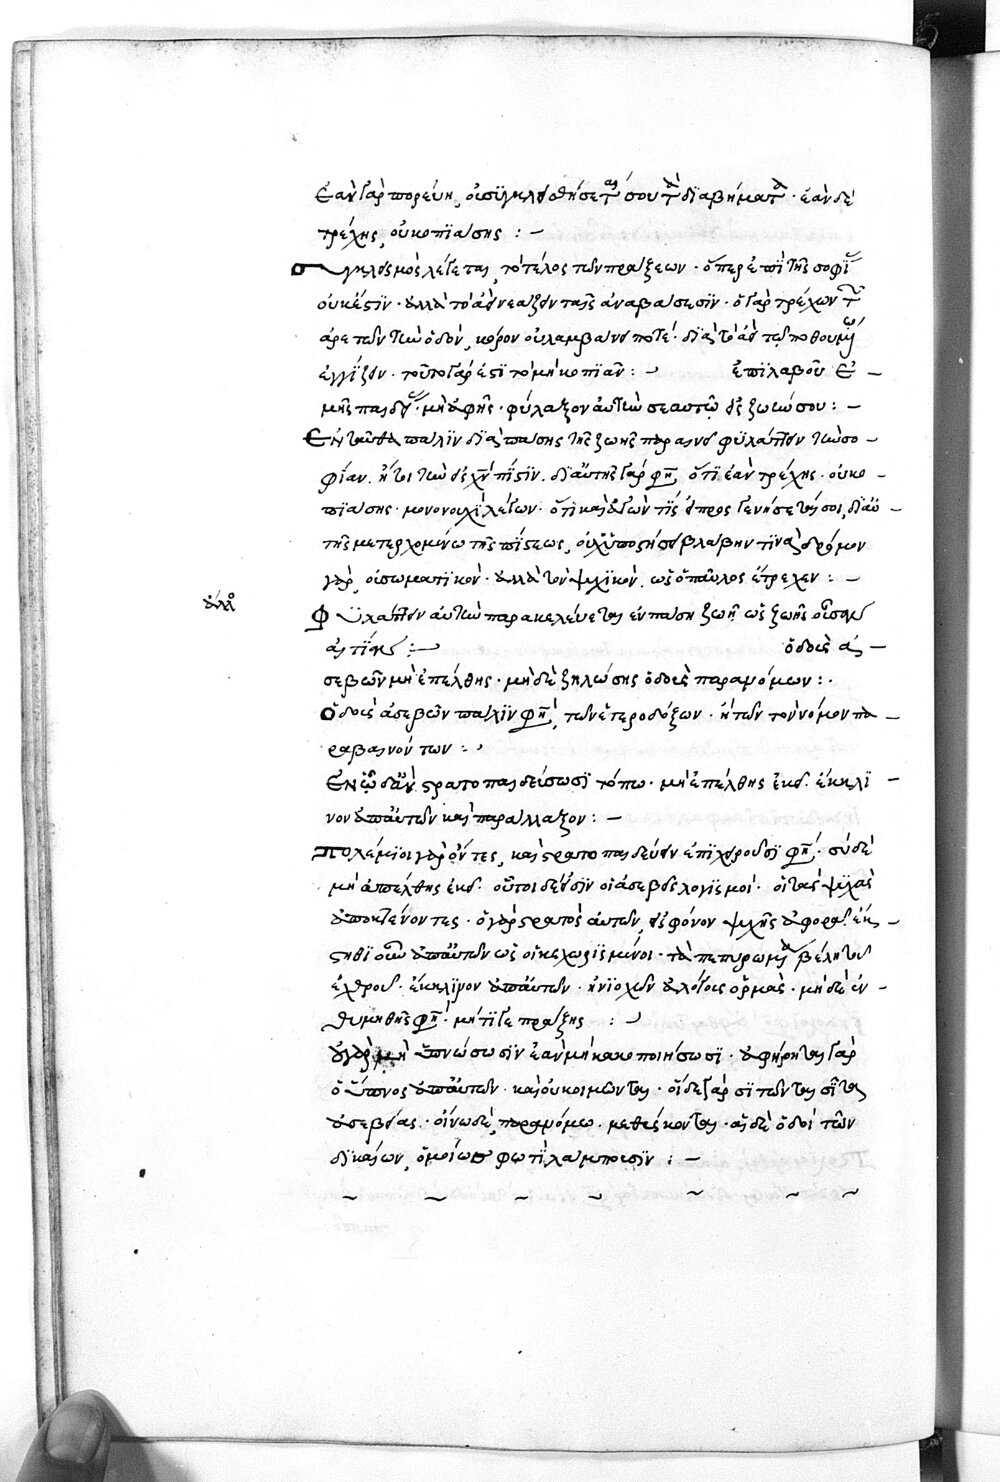 Ἐὰν γὰρ πορεύῃ, οὐ συγκλεισθήσεταί σου τὰ διαβήματα· ἐὰν δὲ
τρέχῃς, οὐ κοπιάσῃς :–
Συγκλεισμὸς λέγεται, τὸ τέλος τῶν πράξεων· ὅπερ ἐπὶ τῆς σοφί
οὐκ ἔστιν· ἀλλὰ τὸ ἀεὶ νεάζειν ταῖς ἀναβάσεσιν· ὁ γὰρ τρέχων τ
ἀρετῶν τὴν ὁδὸν, κόρον οὐ λαμβάνει ποτέ· διὰ τὸ ἀεὶ τῷ ποθουμένῳ
ἐγγίζειν· τοῦτο γάρ ἐστι τὸ μὴ κοπιᾶν : Ἐπιλαβοῦ ἐ–
μῆς παιδείας· μὴ ἀφῇς· φύλαξον αὐτὴν σεαυτῷ εἰς ζωήν σου :–
Ἐνταῦθα πάλιν διὰ πάσης τῆς ζωῆς παραινεῖ φυλάττειν τὴν σο–
φίαν. ἤτοι τὴν εἰς χν πίστιν. δι' αὐτῆς γάρ φη, ὅτι ἐὰν τρέχῃς· οὐ κο–
πιάσῃς· μονονουχὶ λέγων· ὅτι κἂν ἀγών τις ἔμπροσ γενήσεταί σοι, διὰ
τῆς μετερχομένω τῆς πίστεως, οὐχ ὑποστήσει βλάβην τινα δρόμον
γὰρ, οὐ σωματικὸν· ἀλλὰ τὸν ψυχικὸν. ὡς ὁ παῦλος ἔτρεχεν :–
Φυλάττειν αὐτὴν παρακελεύεται ἐν πάσῃ ζωῇ ὡς ζωῆς οὖσαν
αἰτίαν :– ὁδοὺς ἀ–
σεβῶν μὴ ἐπέλθῃς· μηδὲ ζηλώσῃς ὁδοὺς παρανόμων :·
Ὁδοὺς ἀσεβῶν πάλιν φη, τῶν ἑτεροδόξων· ἢ τῶν τὸν νόμον πα–
ραβαινόντων :
Ἐν ᾧ δἂν στρατοπαιδεύσωσι τόπω· μὴ ἐπέλθῃς ἐκεῖ. ἔκκλι–
νον ἀπ' αὐτῶν καὶ παράλλαξον :–
Πολέμιοι γὰρ ὄντες, καὶ στρατοπαιδεύειν ἐπιχειροῦσί φη· σὺ δὲ
μὴ ἀπέλθῃς ἐκεῖ. οὗτοι δέ εἰσιν οἱ ἀσεβεῖς λογισμοί· οἱ τὰς ψυχὰς
ἀποκτένοντες· ὁ γὰρ στρατὸς αὐτῶν, εἰς φόνον ψυχῆς ἀφορᾶ. ἔκ–
στηθι οὖν ἀπ' αὐτῶν ὡς οἱ κεχωρισμένοι· τὰ πεπυρωμένα βέλη τοῦ
ἐχθροῦ· ἔκκλινον ἀπ' αὐτῶν· ἡνιοχῶν ἀλόγους ὁρμάς· μηδὲ ἐν–
θυμηθῇς φη· μήτι γε πράξῃς :
Οὐ γὰρ μὴ ὑπνώσωσιν ἐὰν μὴ κακοποιήσωσι· ἀφῄρηται γὰρ
ὁ ὕπνος ἀπ' αὐτῶν· καὶ οὐ κοιμῶνται· οἵδε γὰρ σιτῶνται σῖτα
ἀσεβείας· οἴνω δὲ, παρανόμω· μεθύσκονται· αἱ δὲ ὁδοὶ τῶν
δικαίων, ὁμοίως φωτὶ λάμπουσιν :–